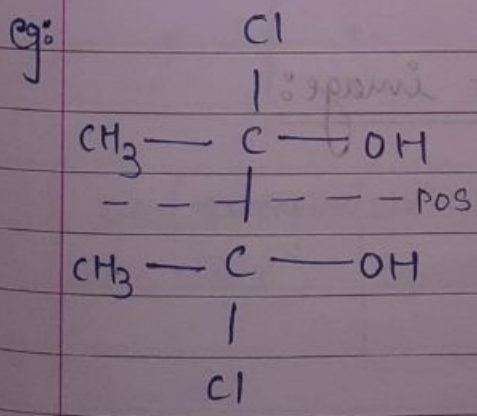 eg:
Cl
|
CH3 — C — OH
| - - - - - - POS
CH3 — C — OH
|
Cl